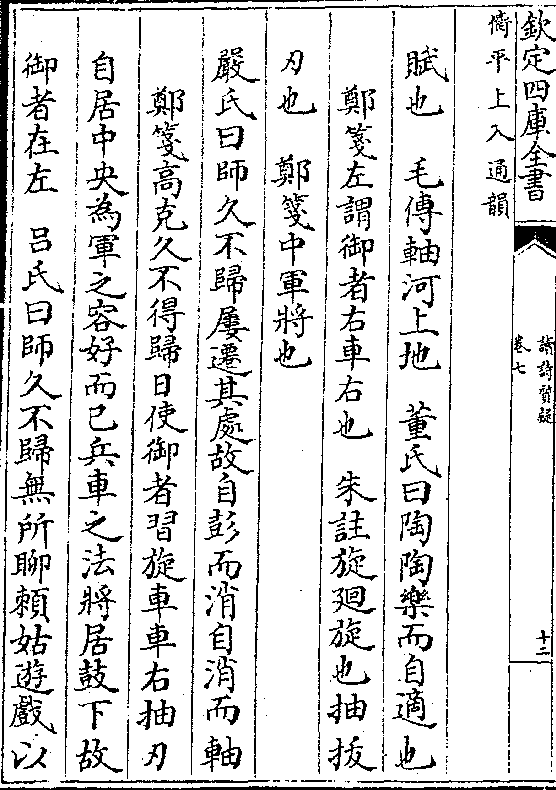 欽定四庫全書
讀詩質疑
卷七
十二
倚平上入通韻
賦也　毛傳軸河上地　董氏曰陶陶樂而自適也
鄭箋左謂御者右車右也　朱註旋廻旋也抽拔
刃也　鄭箋中軍將也
嚴氏曰師久不歸屢遷其處故自彭而消自消而軸
鄭箋高克久不得歸日使御者習旋車車右抽刃
自居中央為軍之容好而已兵車之法將居鼓下故
御者在左　呂氏曰師久不歸無所聊賴姑遊戲以